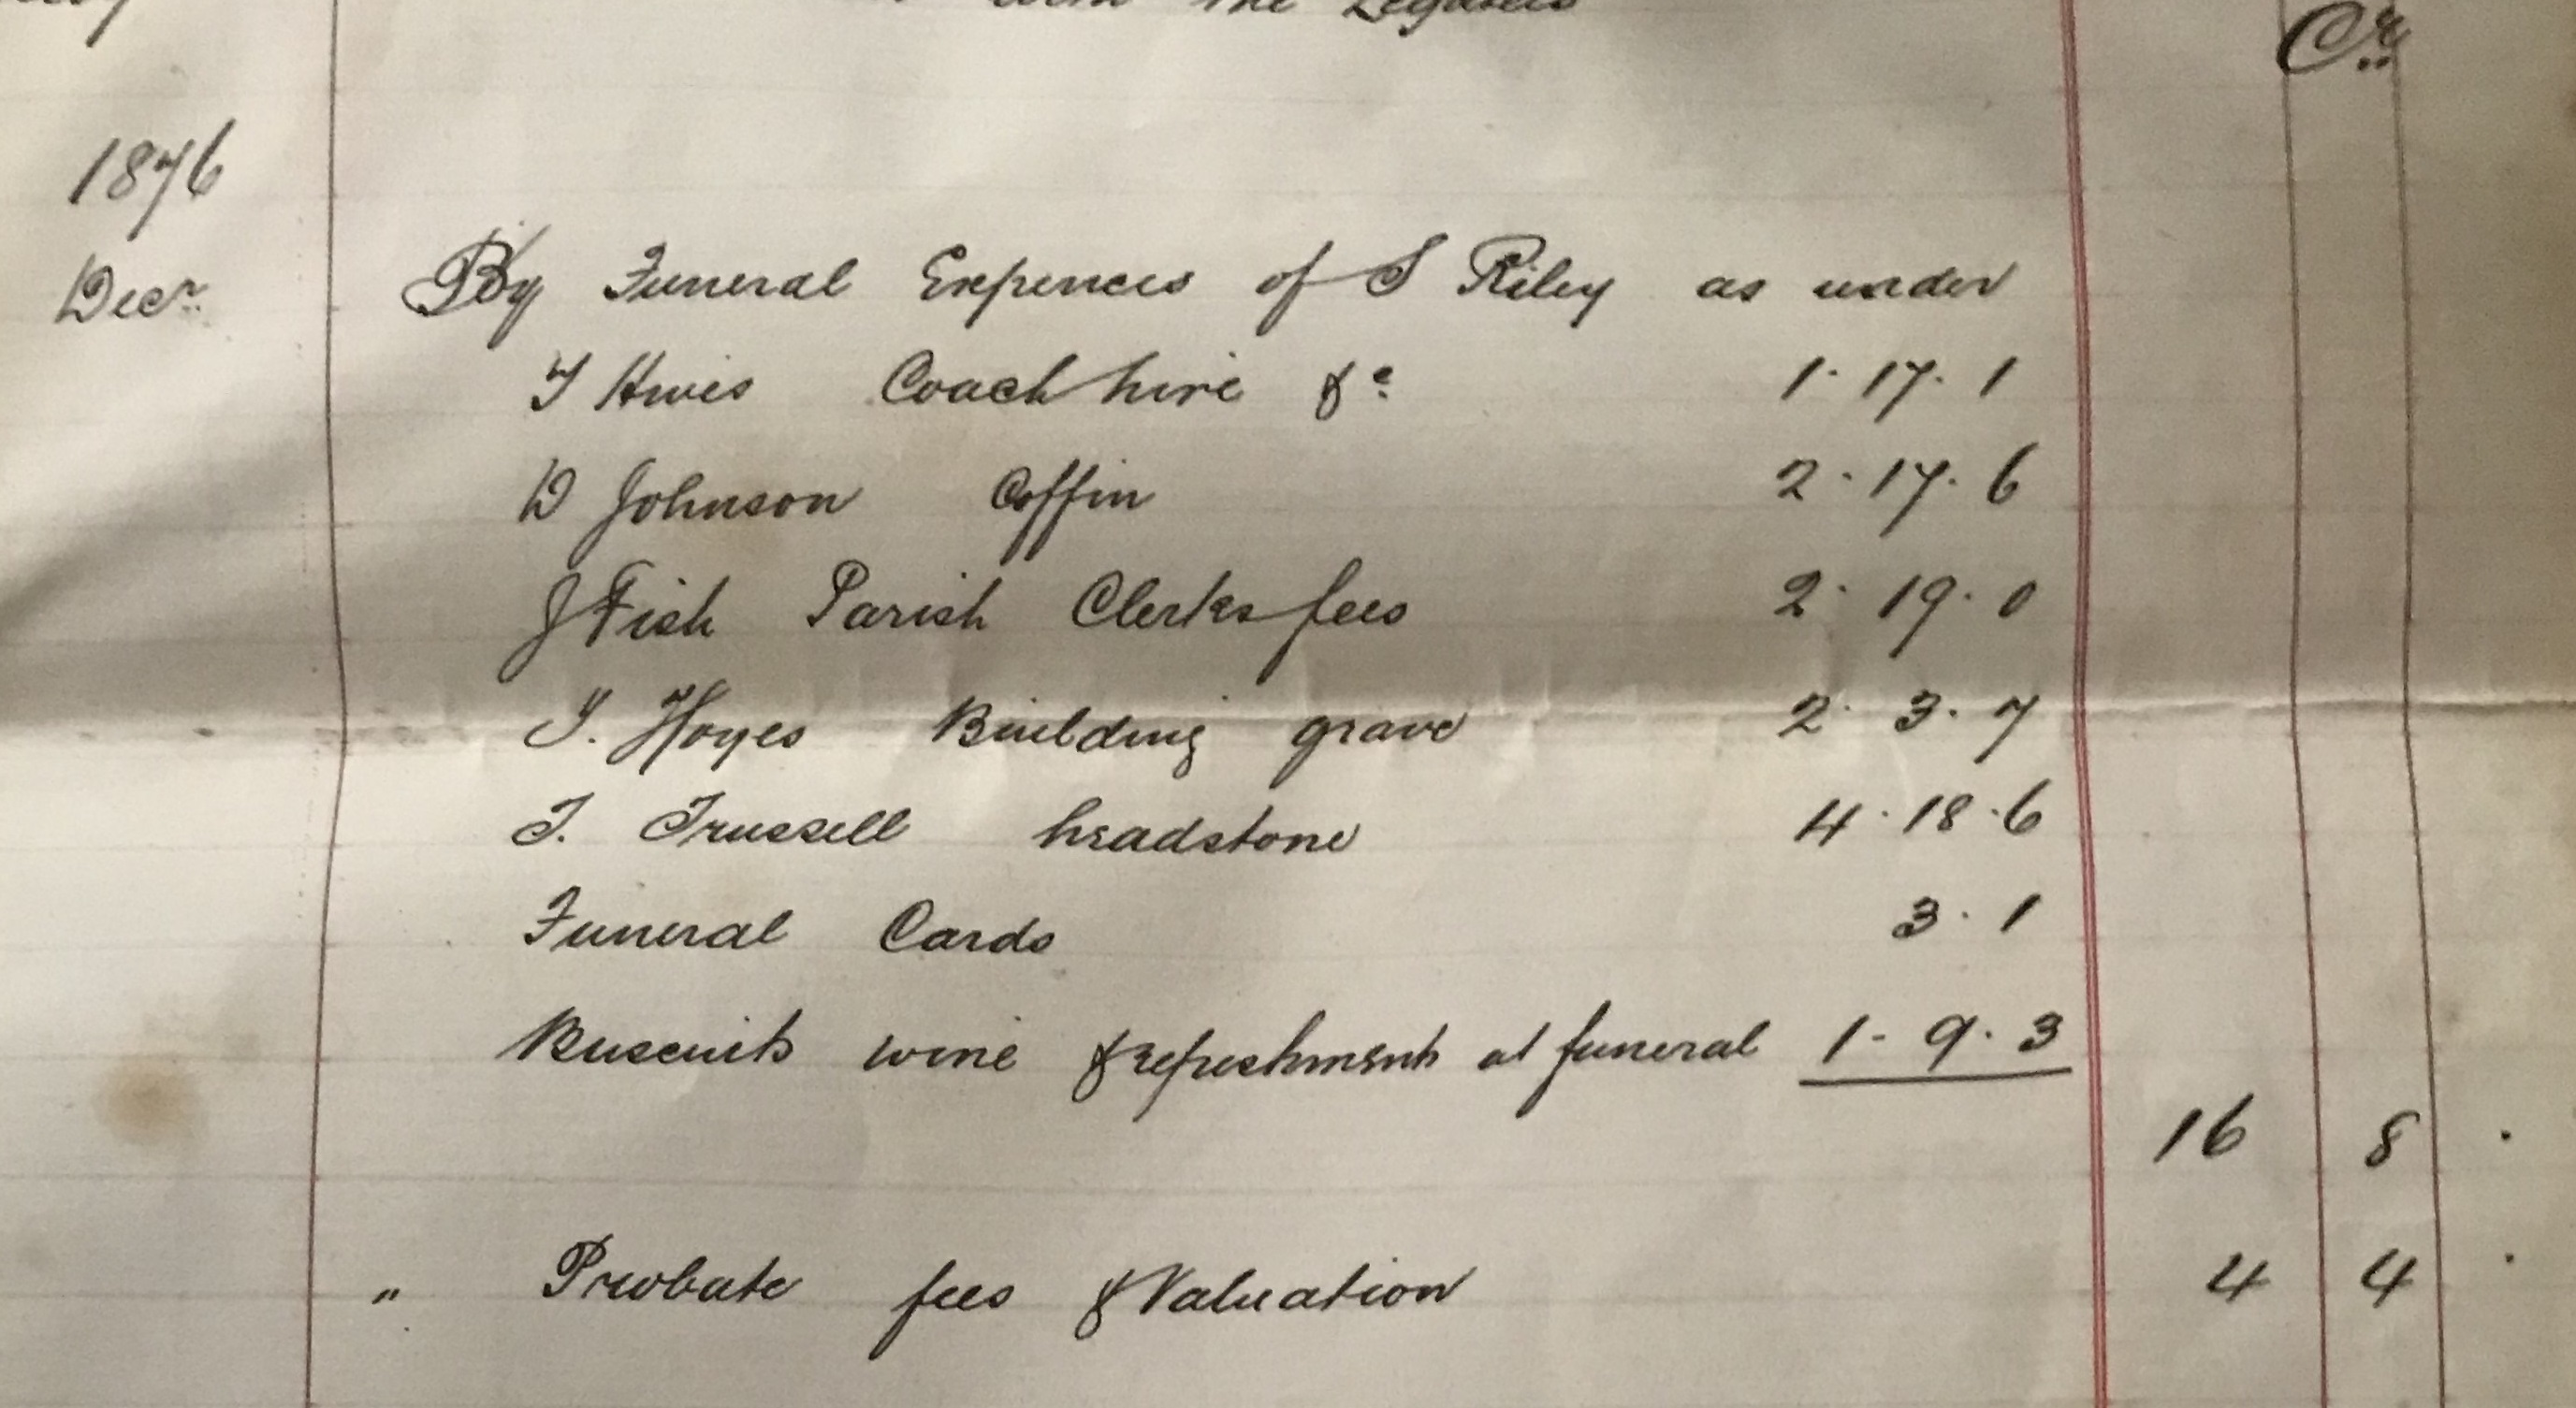 with the Legatees
Cr
1876
Decr By Funeral Expences of S Riley as under
T Hives Coach hire &c 1. 17. 1
D Johnson Coffin 2. 17. 6
J Fish Parish Clerks fees 2. 19. 0
T. Hoyes Building grave 2. 3. 7
T. Trussell headstone 4. 18. 6
Funeral Cards 3. 1
Buscuits wine & refreshments at funeral 1- 9. 3
16 8 .
" Probate fees & Valuation 4 4 .